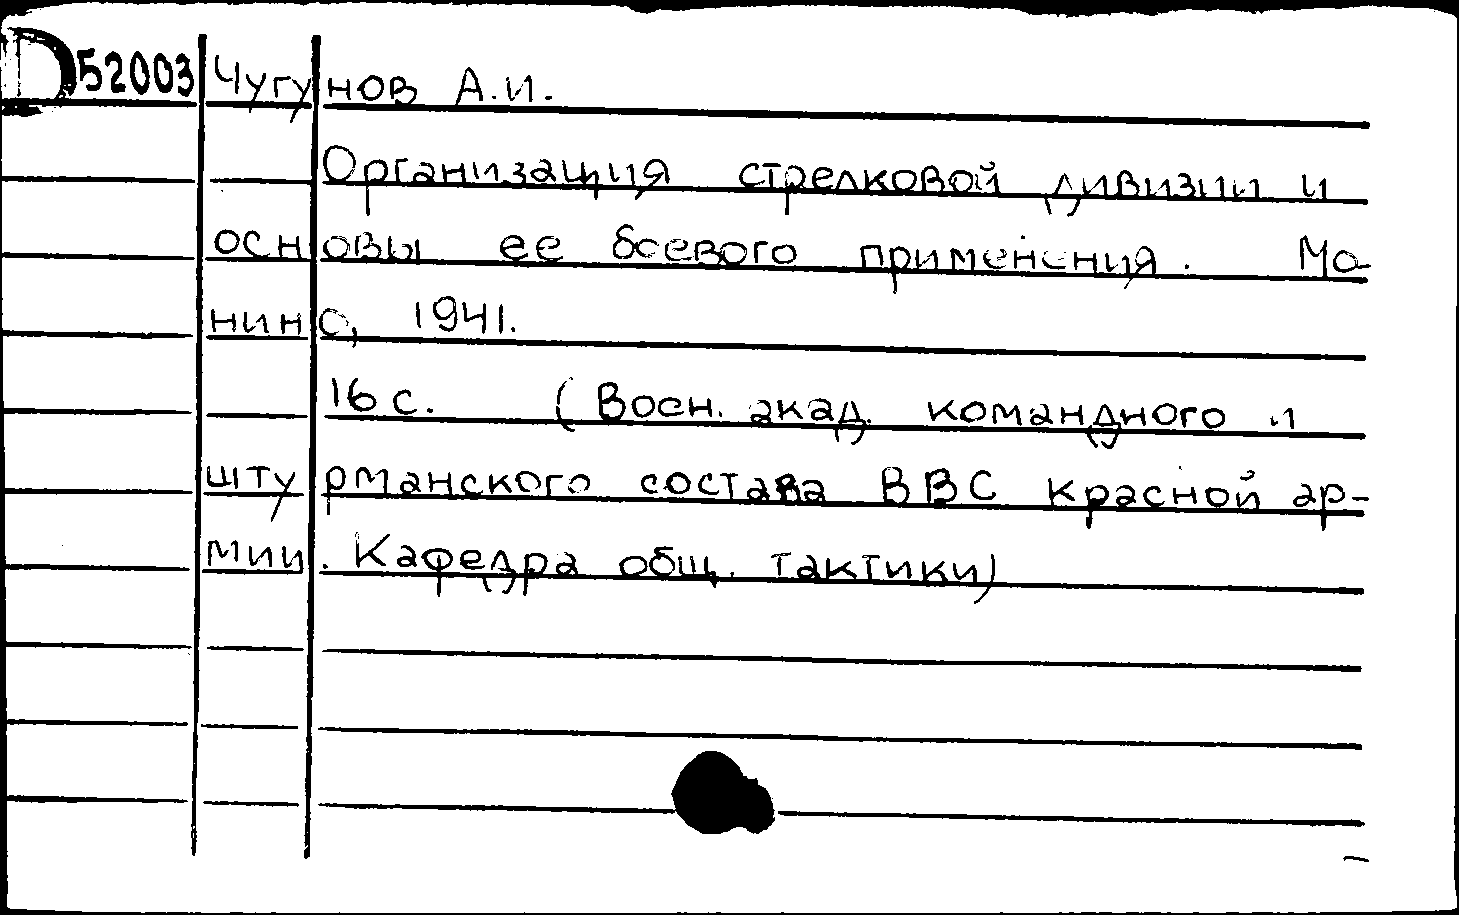 D 52003 Чугунов А.И.
Организация стрелковой дивизии и
основы ее боевого применения. Мо-
нино, 1941.
16 с. (Воен. акад. командного и
штурманского состава ВВС Красной ар-
мии. Кафедра общ. тактики)